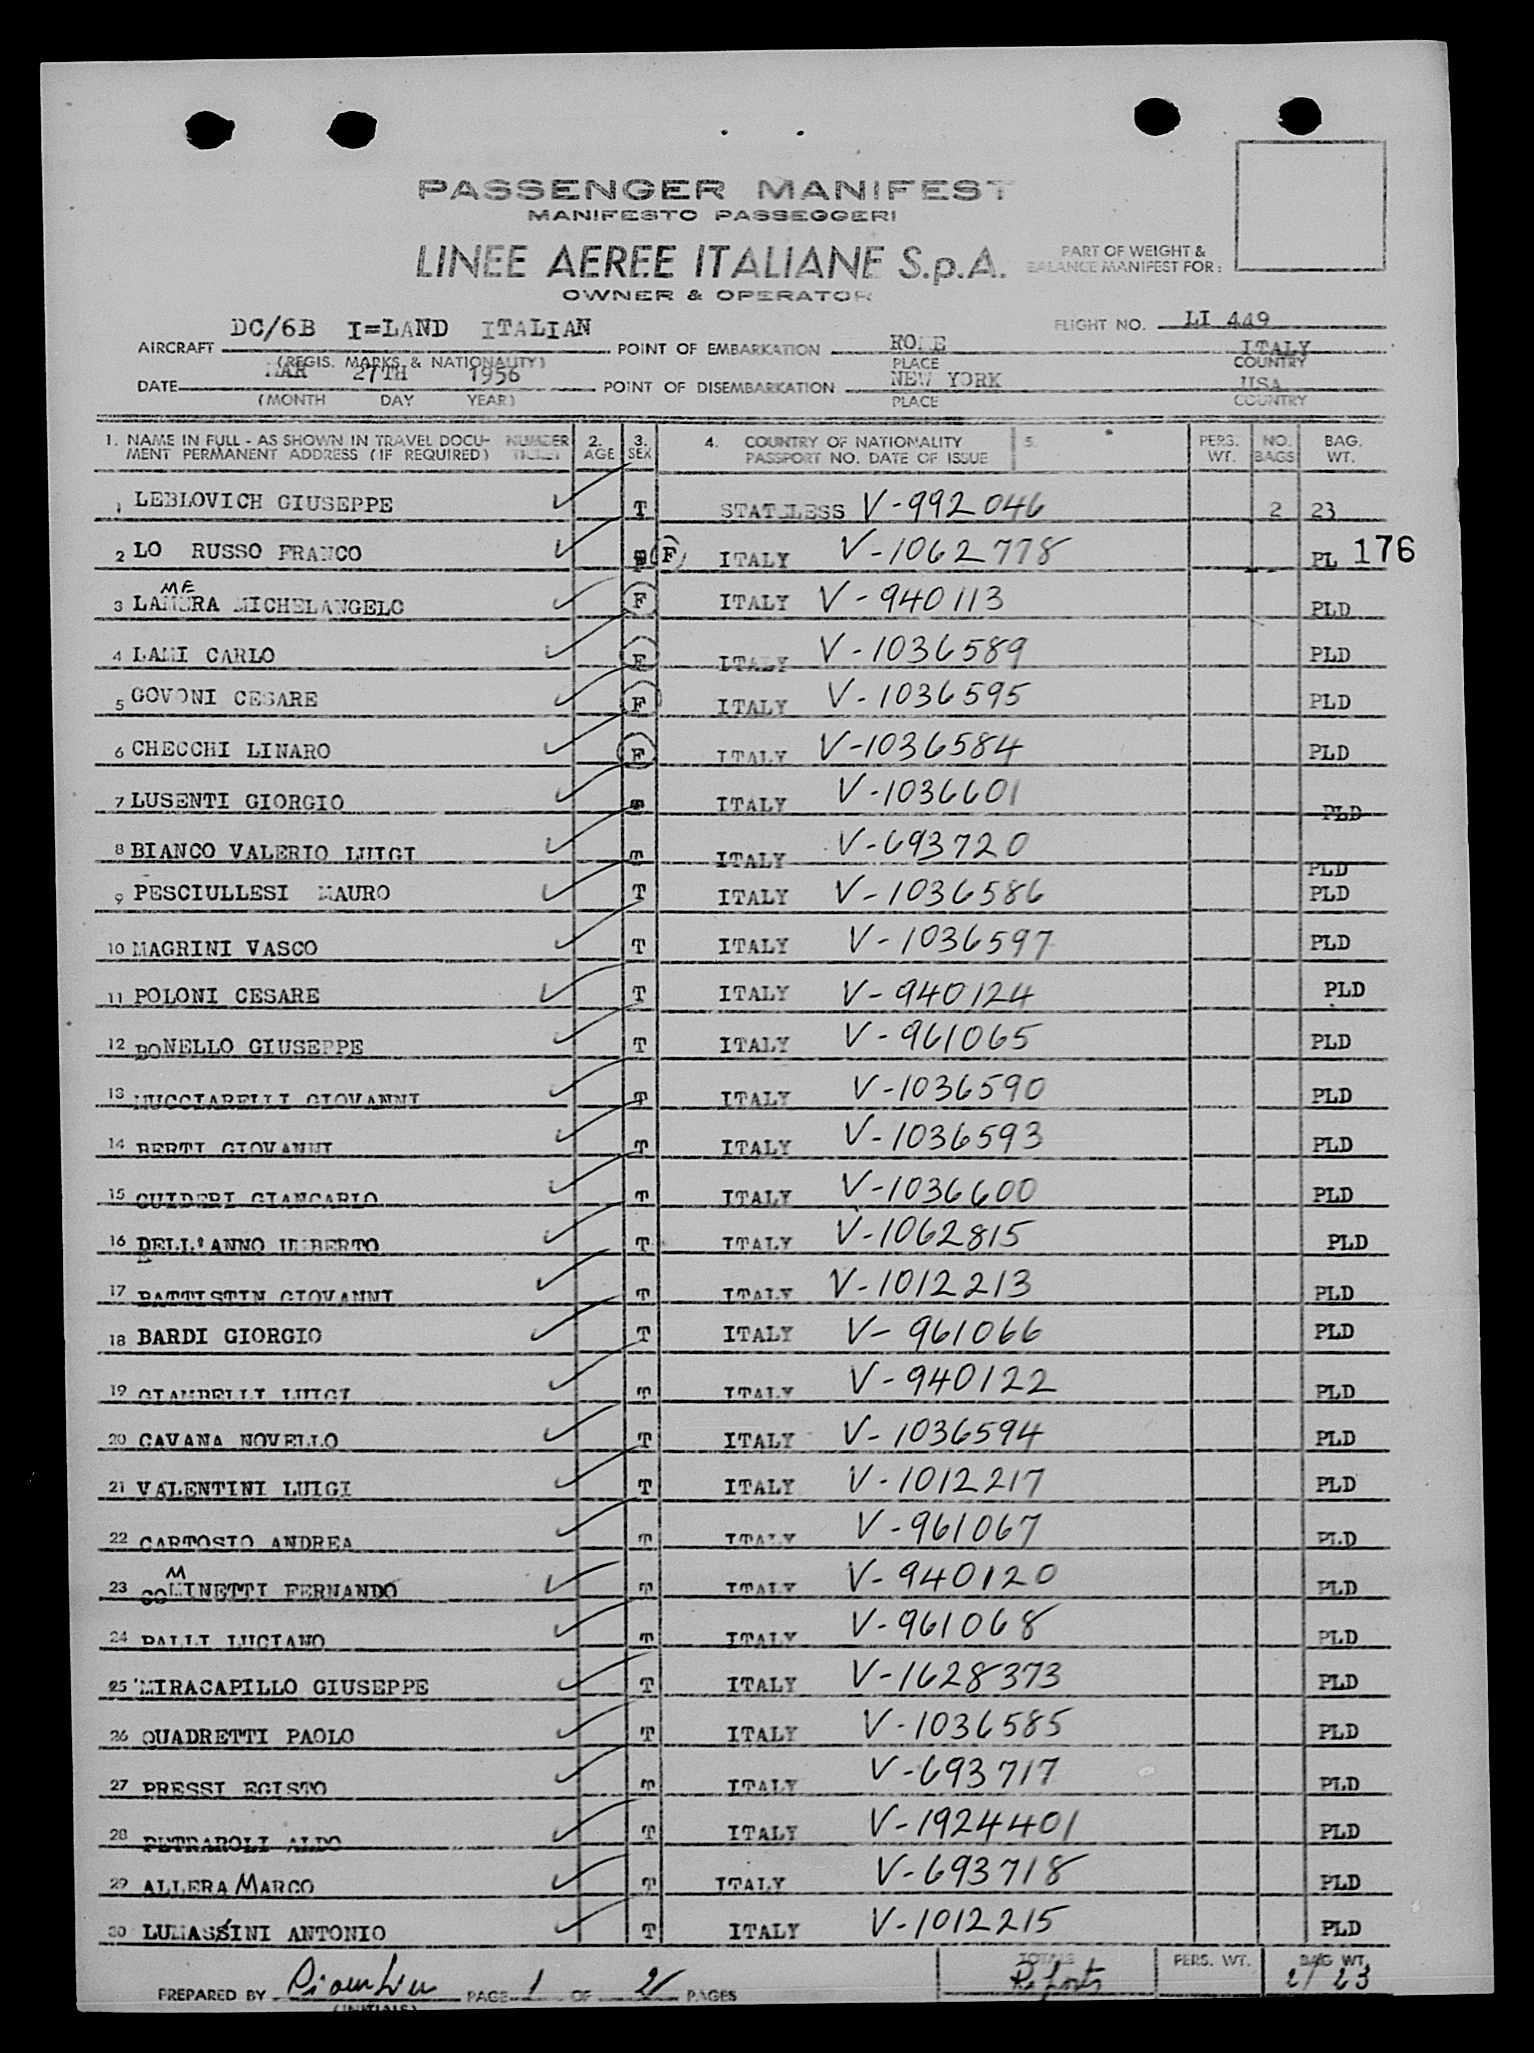 PASSENGER MANIFEST
MANIFESTO PASSEGGERI
LINEE AEREE ITALIANE S.p.A.
OWNER & OPERATOR
PART OF WEIGHT &
BALANCE MANIFEST FOR:
AIRCRAFT DC/6B I=LAND ITALIAN
(REGIS. MARKS & NATIONALITY)
FLIGHT NO. LI 449
POINT OF EMBARKATION ROME ITALY
PLACE COUNTRY
DATE MAR 27TH 1956
(MONTH DAY YEAR)
POINT OF DISEMBARKATION NEW YORK USA
PLACE COUNTRY
1. NAME IN FULL - AS SHOWN IN TRAVEL DOCU- NUMBER 2. 3. 4. COUNTRY OF NATIONALITY 5. PERS. NO. BAG.
MENT PERMANENT ADDRESS (IF REQUIRED) TICKET AGE SEX PASSPORT NO. DATE OF ISSUE WT. BAGS WT.
1 LEBLOVICH GIUSEPPE T STATELESS V-992046 2 23
2 LO RUSSO FRANCO F ITALY V-1062778 PL 176
3 LAMERA MICHELANGELO F ITALY V-940113 PLD
ME
4 LAMI CARLO F ITALY V-1036589 PLD
5 GOVONI CESARE F ITALY V-1036595 PLD
6 CHECCHI LINARO F ITALY V-1036584 PLD
7 LUSENTI GIORGIO T ITALY V-1036601 PLD
8 BIANCO VALERIO LUIGI T ITALY V-693720 PLD
9 PESCIULLESI MAURO T ITALY V-1036586 PLD
10 MAGRINI VASCO T ITALY V-1036597 PLD
11 POLONI CESARE T ITALY V-940124 PLD
12 BONELLO GIUSEPPE T ITALY V-961065 PLD
13 MUCCIARELLI GIOVANNI T ITALY V-1036590 PLD
14 BERTI GIOVANNI T ITALY V-1036593 PLD
15 GUIDERI GIANCARLO T ITALY V-1036600 PLD
16 DELL'ANNO UMBERTO T ITALY V-1062815 PLD
17 BATTISTIN GIOVANNI T ITALY V-1012213 PLD
18 BARDI GIORGIO T ITALY V-961066 PLD
19 GIAMBELLI LUIGI T ITALY V-940122 PLD
20 CAVANA NOVELLO T ITALY V-1036594 PLD
21 VALENTINI LUIGI T ITALY V-1012217 PLD
22 CARTOSIO ANDREA T ITALY V-961067 PLD
23 COMINETTI FERNANDO T ITALY V-940120 PLD
M
24 PALLI LUCIANO T ITALY V-961068 PLD
25 MIRACAPILLO GIUSEPPE T ITALY V-1628373 PLD
26 QUADRETTI PAOLO T ITALY V-1036585 PLD
27 PRESSI EGISTO T ITALY V-693717 PLD
28 PETRAROLI ALDO T ITALY V-1924401 PLD
29 ALLERA MARCO T ITALY V-693718 PLD
30 LUMASSINI ANTONIO T ITALY V-1012215 PLD
PREPARED BY PAGE 1 OF 2 PAGES TOTALS PERS. WT. BAG WT.
(INITIALS) 2/23